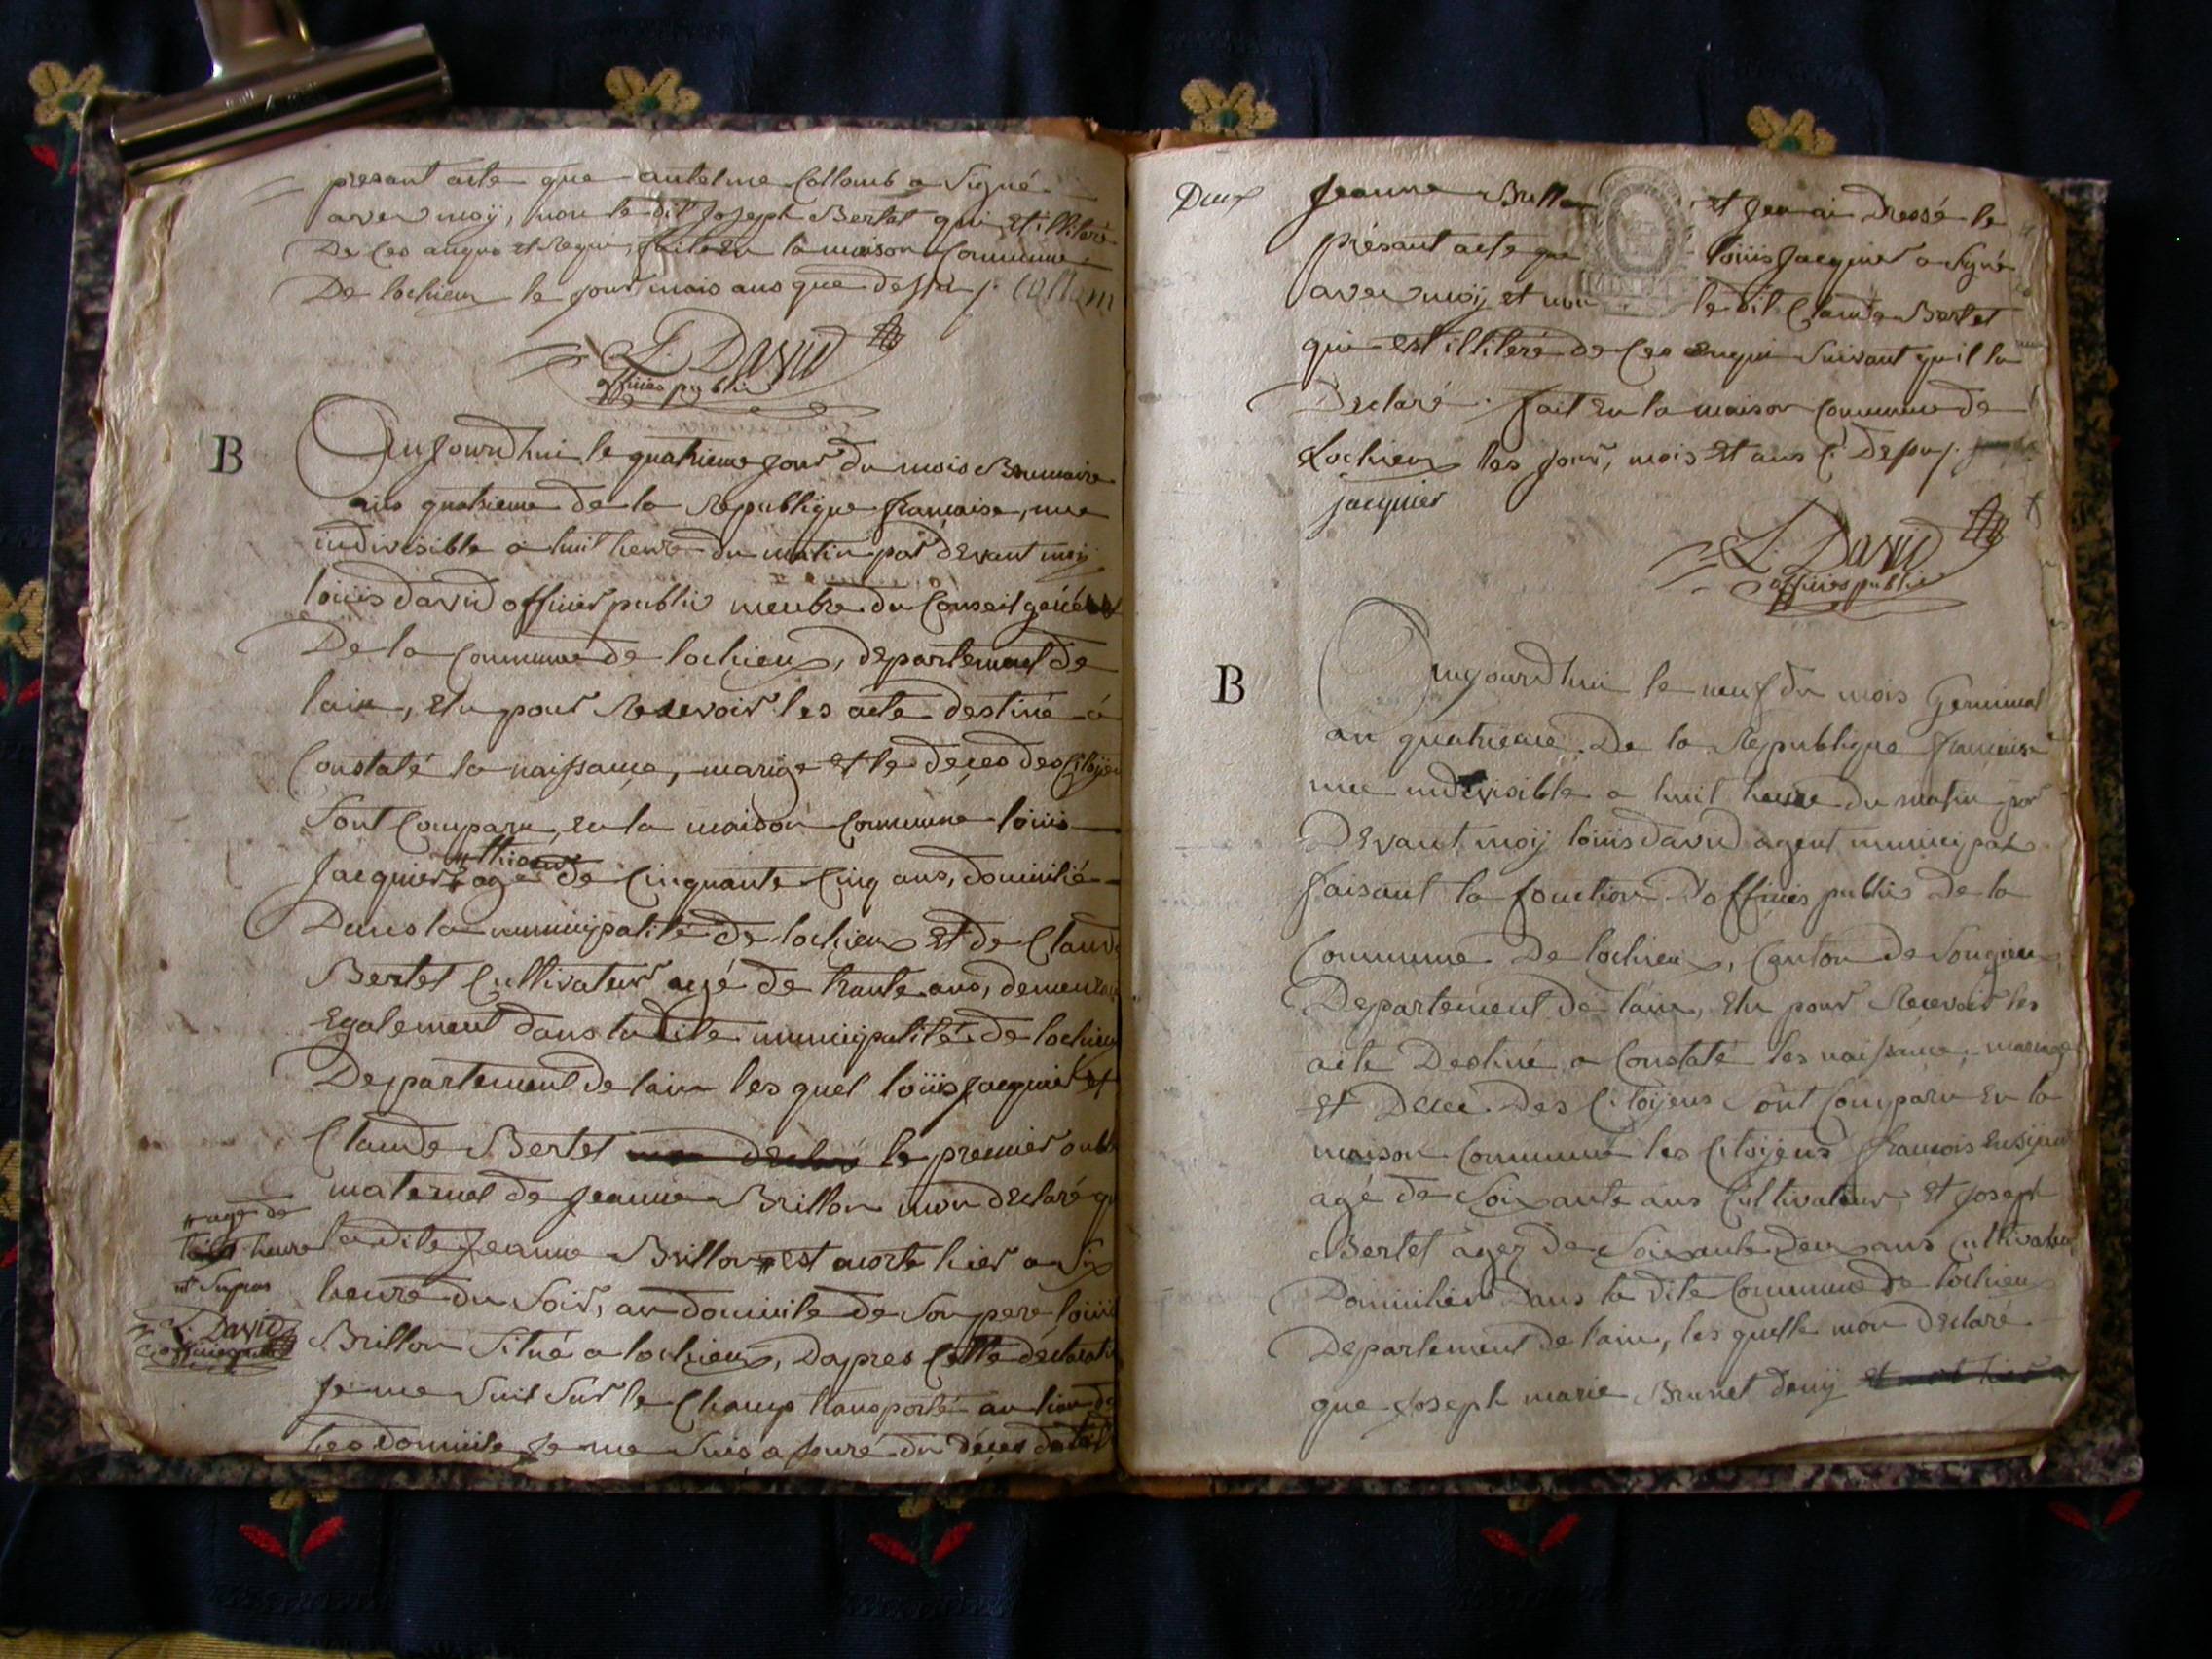 presant acte que antelme Collomb a signé
avec moÿ, non le dit Joseph Bertet qui est illiteré
De Ces enquis et Requi, faite en la maison Commune
De lochieu le jour mois ans que dessu /. Collom
L. David
officier public
B
Aujourdhui le quatrieme jour du mois Brumaire
ans quatrieme de la Republique francaise, une
indivisible a huit heure du matin par devant moÿ
loüis david officier public menbre du Conseil general
De la Commune de lochieu, departement de
lain, Elu pour Recevoir les acte destiné a
Constaté la naissance, mariage et le deçes des Citoÿen
Sont Comparu, en la maison Commune loüis
Jacquier agé de Cinquante Cinq ans, domicilié
Dans la municipalité de lochieu et de Claude
Bertet Cultivateur agé de trante ans, demeurant
Egalement dans la dite municipalité de lochieu
Departement de lain les quel loüis Jacquier et
Claude Bertet le premier oncle
maternel de Jeanne Brillon mon declaré que
la dite Jeanne Brillon est morte hier a six
heure du soir, au domicile de son pere loüis
Brillon Situé a lochieu, Dapres Cette déclaration
Je me suis sur le Champ transporté au lieu de
Ces domicile je me suis assuré du décès
agé de
heure
L. David
Deux
Jeanne Brillon et jen ai dressé le
présant acte que loüis Jacquier a signé
avec moÿ et non le dit Claude Bertet
qui est illiteré de Ces enquis suivant quil la
Declaré. fait en la maison Commune de
Lochieu les jour, mois et ans
jacquier
L. David
officier public
B
Aujourdhui le neuf du mois Germinal
an quatrieme. De la Republique francaise
une indivisible a huit heure du matin par
Devant moÿ loüis david agent municipal
faisant la fonction D'officier public De la
Commune De lochieu, Canton de Songieu
Departement de lain, Elu pour Recevoir les
acte Destiné a Constaté les naissance, mariage
et Décé. Des Citoÿens sont Comparu En la
maison Commune les Citoÿens francois
agé de soixante ans Cultivateur et joseph
Bertet agez de soixante deux ans Cultivateur
Domicilier Dans la dite Commune de lochieu
Departement de lain, les quelle mon declaré
que Joseph marie Brunet